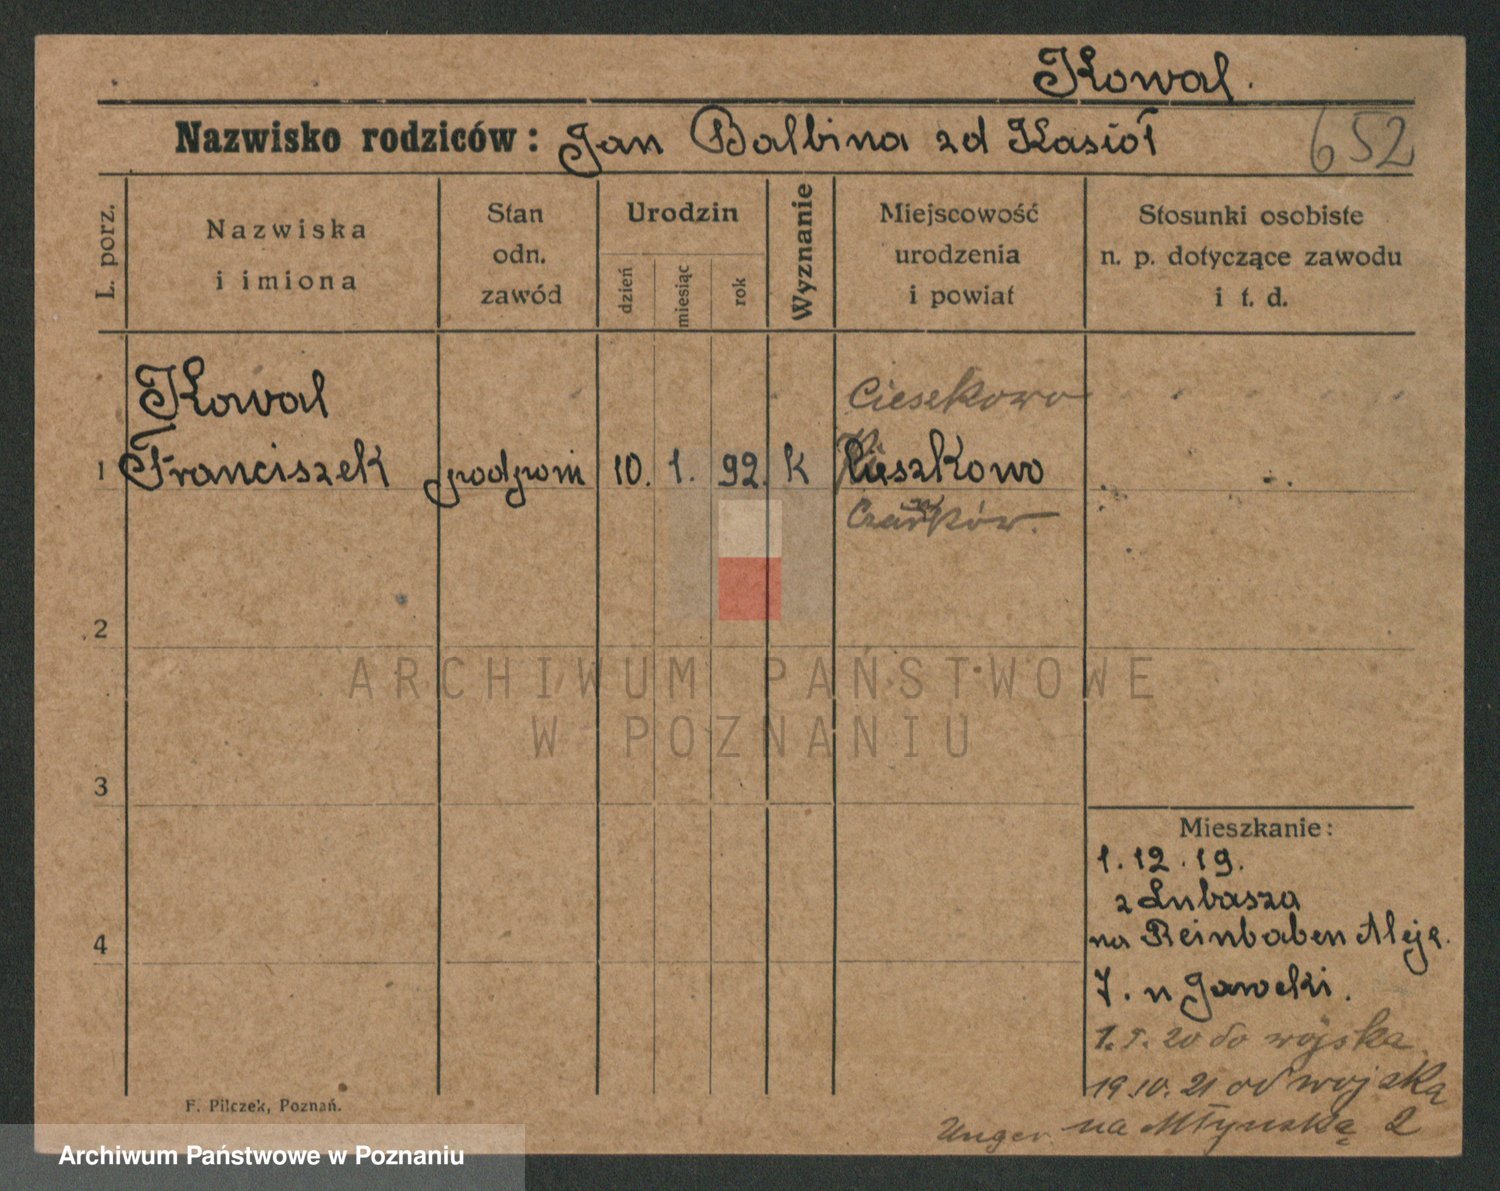 Kowal.
Nazwisko rodziców: Jan Balbina zd Kasiół
652
L. porz.
Nazwiska i imiona
Stan odn. zawód
Urodzin
dzień
miesiąc
rok
Wyznanie
Miejscowość urodzenia i powiat
Stosunki osobiste n. p. dotyczące zawodu i t. d.
Kowal
Cieszkowo
1 Franciszek podpom 10. 1. 92. k Cieszkowo
Czarków.
2
ARCHIWUM PAŃSTWOWE
W POZNANIU
3
Mieszkanie:
1. 12. 19.
z Lubasza
4
na Reinbaben Aleje.
7. u Gawecki.
1. 5. 20 do wojska
19.10. 21 od wojska
Unger na Młyńską 2
F. Pilczek, Poznań.
Archiwum Państwowe w Poznaniu